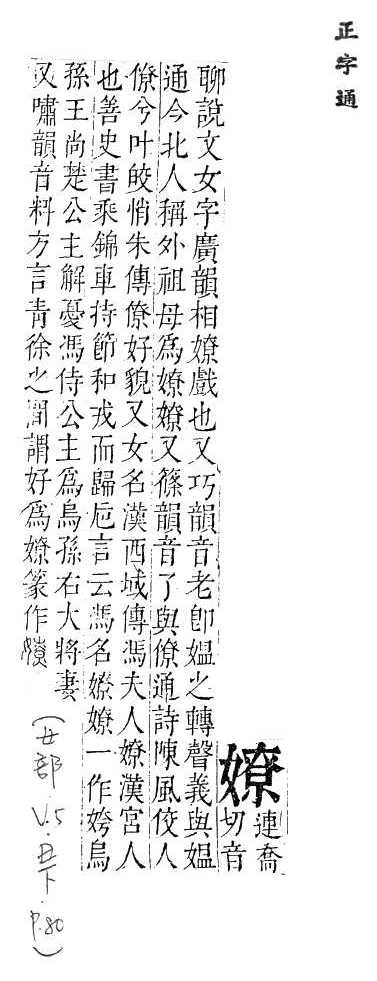 正字通
嫽
連喬
切音
聊說文女字廣韻相嫽戲也又巧韻音老卽媼之轉聲義與媼
通今北人稱外祖母爲嫽嫽又篠韻音了與僚通詩陳風佼人
僚兮叶皎悄朱傳僚好貌又女名漢西域傳馮夫人嫽漢宮人
也善史書乘錦車持節和戎而歸卮言云馮名嫽嫽一作姱烏
孫王尚楚公主解憂馮侍公主爲烏孫右大將妻
又嘯韻音料方言靑徐之間謂好爲嫽篆作
(女部 V.5.丑下.P.80)